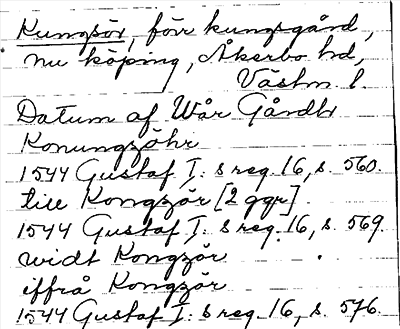 Kungsör, förr kungsgård,
nu köping, Åkerbo hd,
Västm l.
Datum af Wår Gårdh
Konungzöhr
1544 Gustaf I: s reg. 16, s. 560.
till Kongzör [2 ggr].
1544 Gustaf I: s reg. 16, s. 569.
widt Kongzör
iffrå Kongzör
1544 Gustaf I: s reg. 16, s. 576.